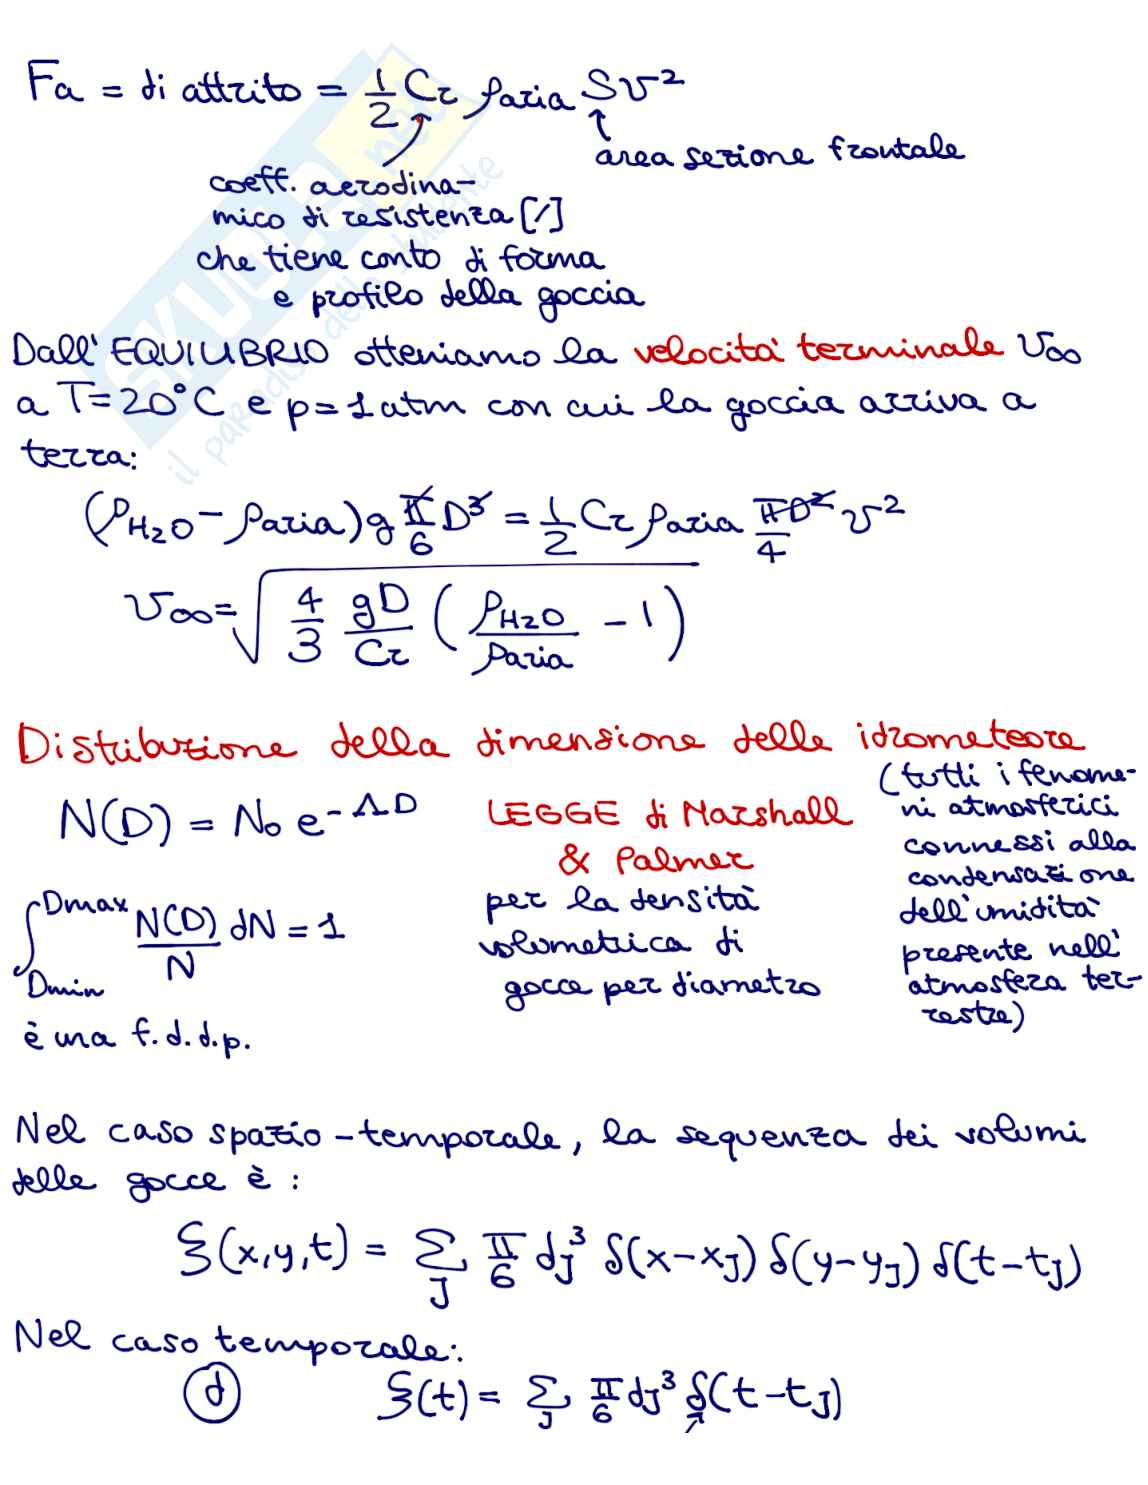 Fa = di attrito = 1/2 Cr ρaria S v²
area sezione frontale
coeff. aerodina-
mico di resistenza [/]
che tiene conto di forma
e profilo della goccia
Dall'EQUILIBRIO otteniamo la velocità terminale v∞
a T=20°C e p=1atm con cui la goccia arriva a
terra:
(ρH2O - ρaria) g π/6 D³ = 1/2 Cr ρaria πD²/4 v²
v∞ = √(4/3 gD/Cr (ρH2O/ρaria - 1))
Distribuzione della dimensione delle idrometeore
(tutti i fenome-
ni atmosferici
connessi alla
condensazione
dell'umidità
presente nell'
atmosfera ter-
restre)
N(D) = N₀ e^-ΛD
LEGGE di Marshall
& Palmer
per la densità
volumetrica di
gocce per diametro
∫Dmin^Dmax N(D)/N dN = 1
è una f.d.d.p.
Nel caso spazio-temporale, la sequenza dei volumi
delle gocce è:
ξ(x,y,t) = Σ_J π/6 dJ³ δ(x-xJ) δ(y-yJ) δ(t-tJ)
Nel caso temporale:
d
ξ(t) = Σ_J π/6 dJ³ δ(t-tJ)
SKUOLA.net
il paradiso dello studente